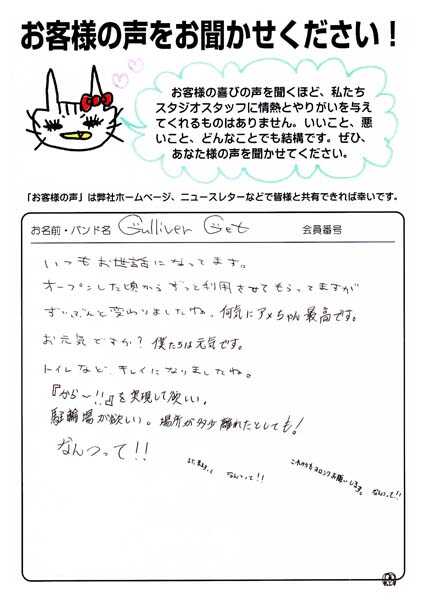 お客様の声をお聞かせください！
お客様の喜びの声を聞くほど、私たち
スタジオスタッフに情熱とやりがいを与え
てくれるものはありません。いいこと、悪
いこと、どんなことでも結構です。ぜひ、
あなた様の声を聞かせてください。
「お客様の声」は弊社ホームページ、ニュースレターなどで皆様と共有できれば幸いです。
お名前・バンド名 Gulliver Get 会員番号
いつもお世話になってます。
オープンした頃からずっと利用させてもらってますが
ずいぶんと変わりましたね。何気にアメちゃん最高です。
お元気ですか？僕たちは元気です。
トイレなど、キレイになりましたね。
『から〜!!』を実現して欲しい。
駐輪場が欲しい。場所が多少離れたとしても！
なんつって!!
なんつって!!
これからもヨロシクお願いします。なんつって!!